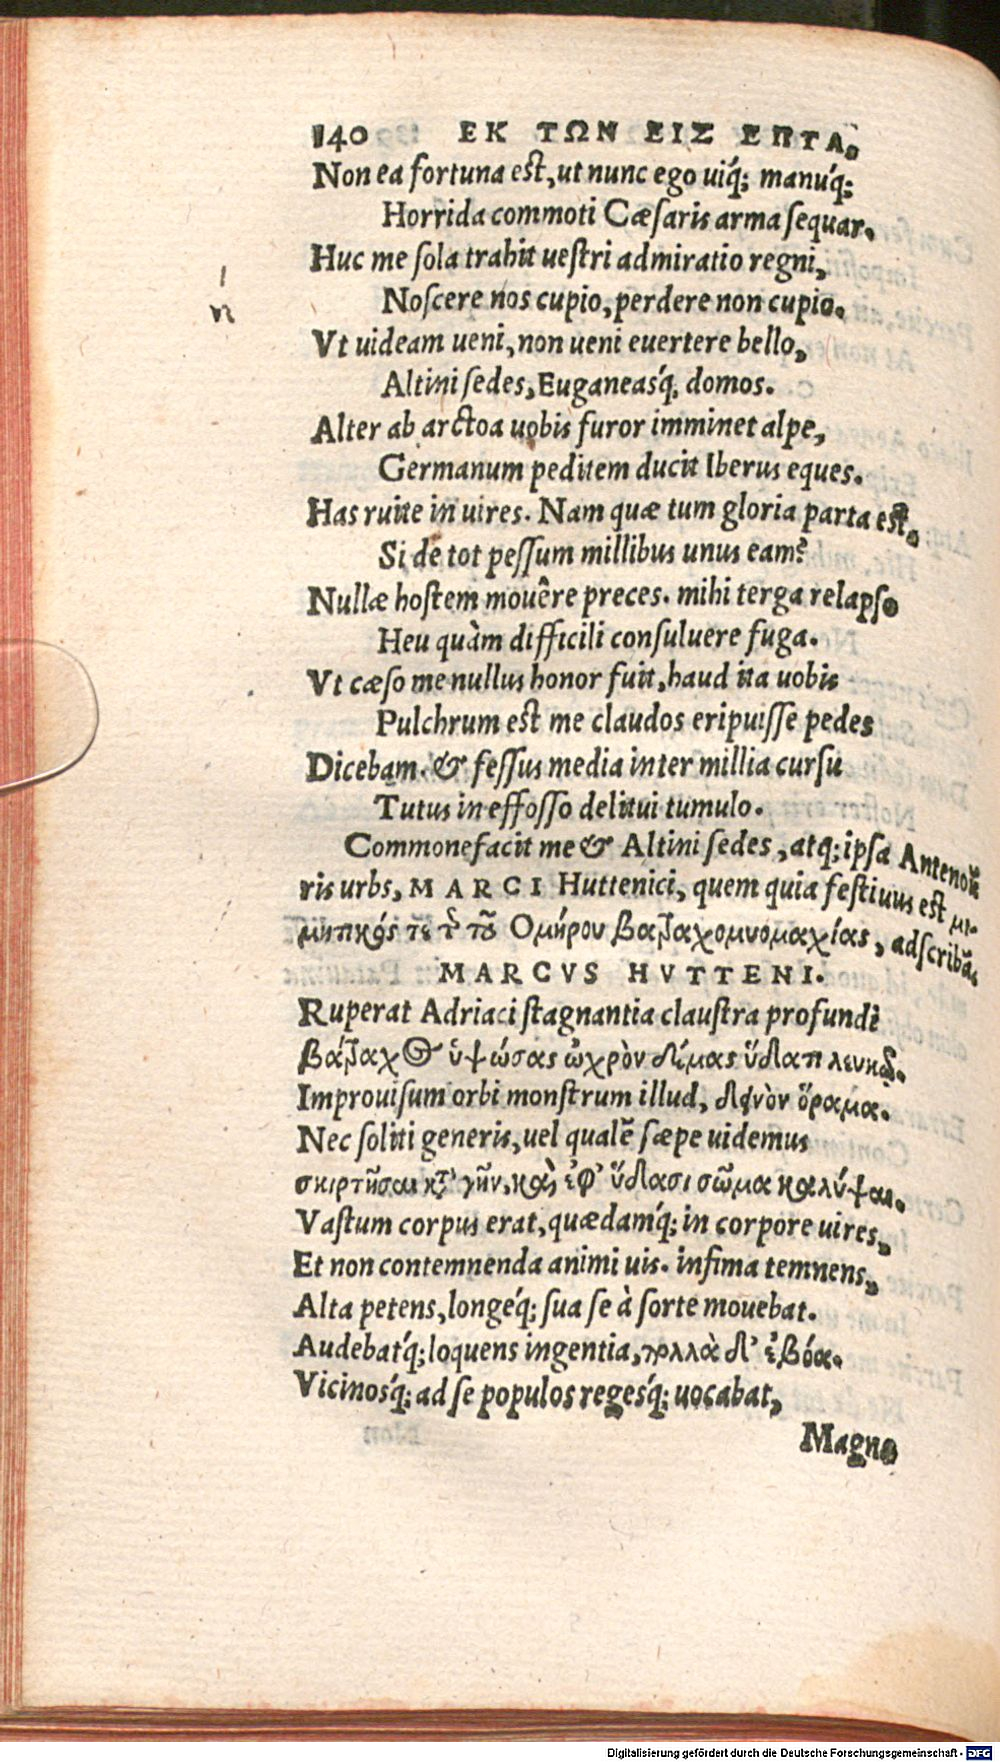 140 ΕΚ ΤΩΝ ΕΙΣ ΕΠΤΑ.
Non ea fortuna est, ut nunc ego uiq́; manuq́;
Horrida commoti Cæsaris arma sequar.
Huc me sola trahit uestri admiratio regni,
Noscere nos cupio, perdere non cupio.
n
Vt uideam ueni, non ueni euertere bello,
Altini sedes, Euganeasq́, domos.
Alter ab arctoa uobis furor imminet alpe,
Germanum peditem ducit Iberus eques.
Has ruite in uires. Nam quæ tum gloria parta est,
Si de tot pessum millibus unus eam?
Nullæ hostem mouêre preces. mihi terga relapso
Heu quàm difficili consuluere fuga.
Vt cæso me nullus honor fuit, haud ita uobis
Pulchrum est me claudos eripuisse pedes
Dicebam. & fessus media inter millia cursu
Tutus in effosso delitui tumulo.
Commonefacit me & Altini sedes, atq; ipsa Antenoris
ris urbs, MARCI Huttenici, quem quia festiuus est μι-
μητικός τε τ͂ τοῦ Ομήρου βατραχομυομαχίας, adscribā.
MARCVS HVTTENI.
Ruperat Adriaci stagnantia claustra profundi
βάτραχος ὑψώσας ὠχρὸν δέμας ὕδατι λευκῷ.
Improuisum orbi monstrum illud, δεινὸν ὅραμα.
Nec soliti generis, uel qualē sæpe uidemus
σκιρτῆσαι κατὰ γῆν, καὶ ἐφ' ὕδασι σῶμα καλύψαι.
Vastum corpus erat, quædamq́; in corpore uires,
Et non contemnenda animi uis. infima temnens,
Alta petens, longeq́; sua se à sorte mouebat.
Audebatq́; loquens ingentia, πολλὰ δ' ἐβόα.
Vicinosq́; ad se populos regesq́; uocabat,
Magno
Digitalisierung gefördert durch die Deutsche Forschungsgemeinschaft - DFG